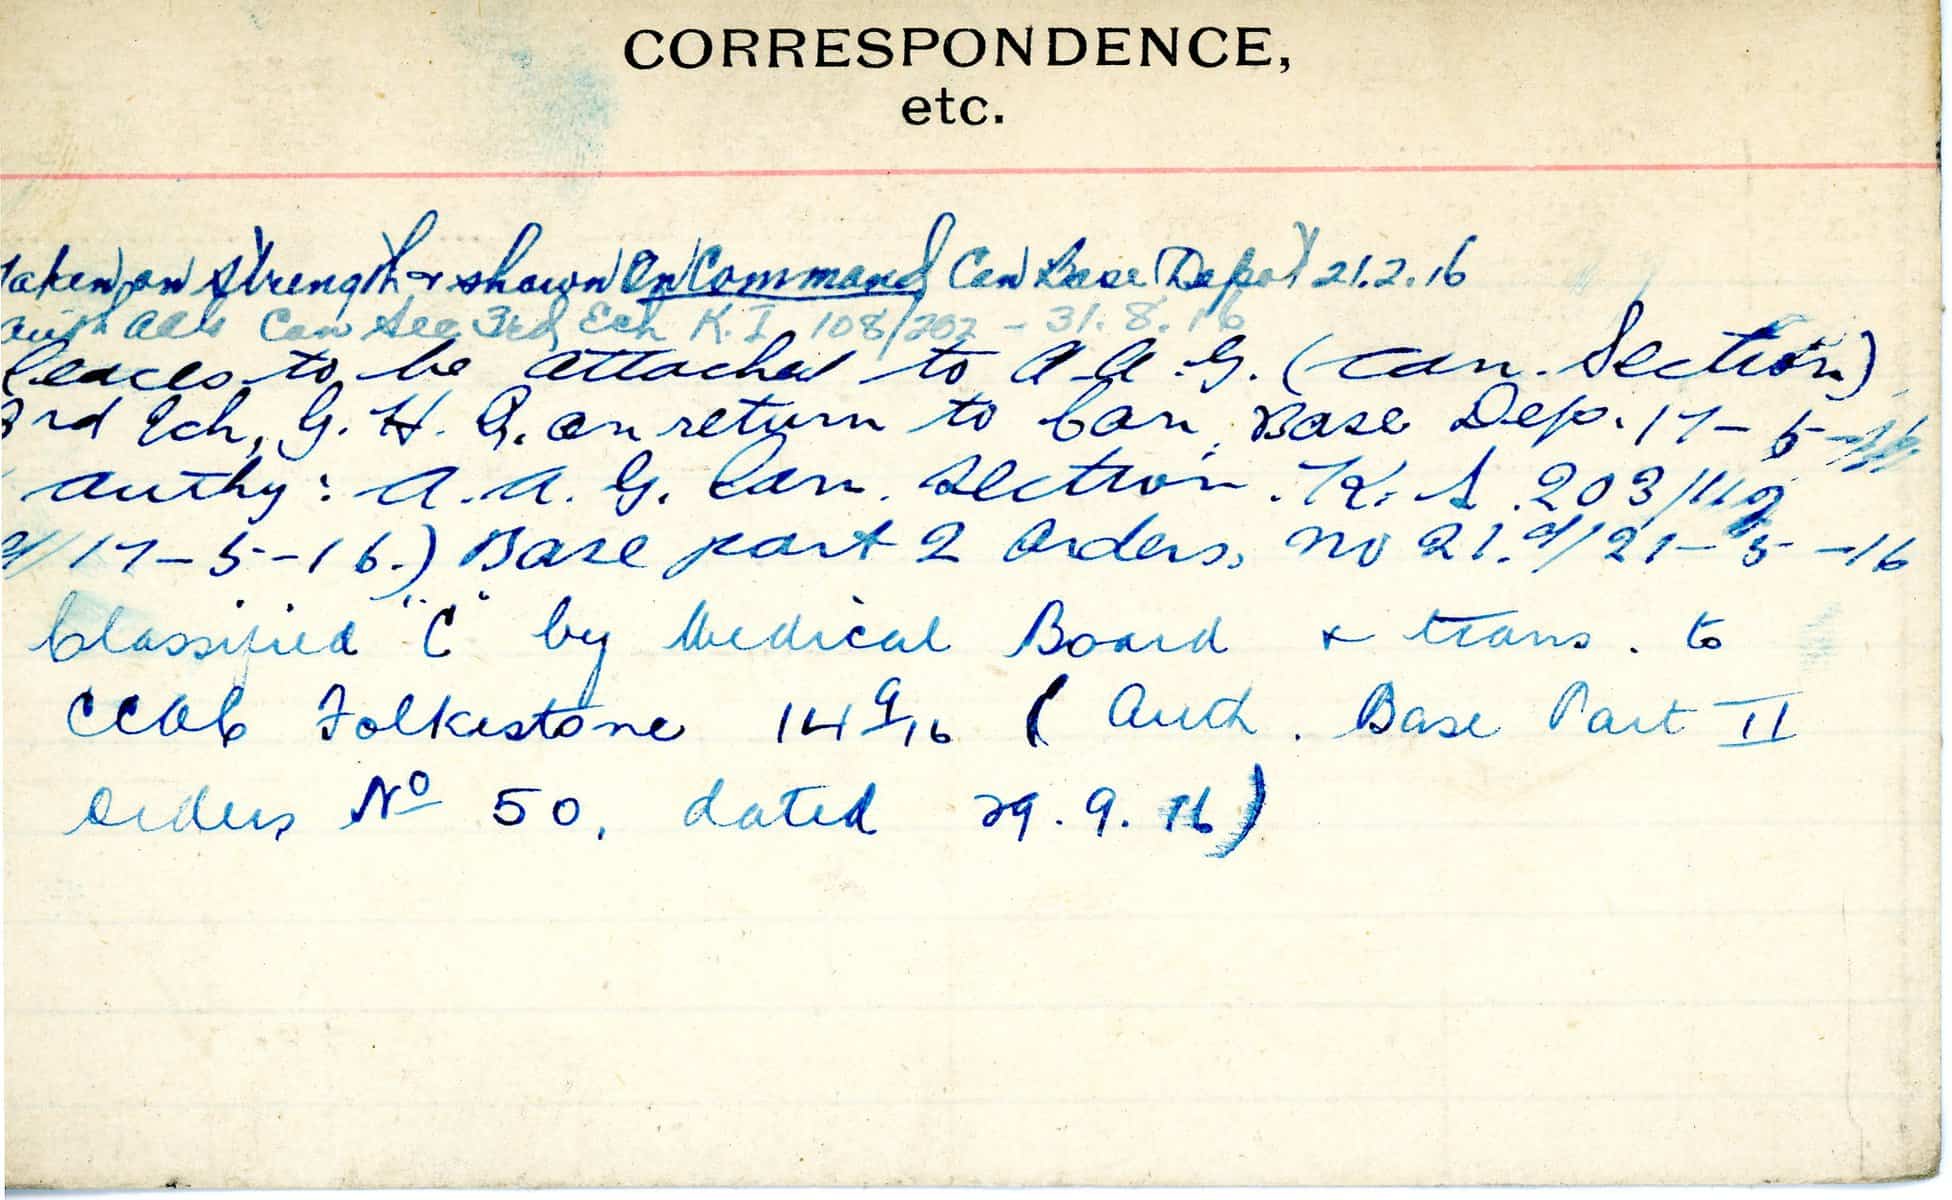 CORRESPONDENCE,
etc.
Taken on Strength & shown On Command Can Base Depot 21.2.16
Auth AAG Can Sec 3rd Ech K.I 108/202 - 31.8.16
Ceases to be attached to A.A.G. (Can. Section)
3rd Ech, G.H.Q. on return to Can. Base Dep. 17-5-16
Authy: A.A.G. Can. Section. K.
d/17-5-16.) Base part 2 Orders, No 21. d/21-5-16
Classified "C" by Medical Board & trans. to
CCAC Folkestone 14 9/16 ( Auth. Base Part II
Orders No 50, dated 29.9.16)